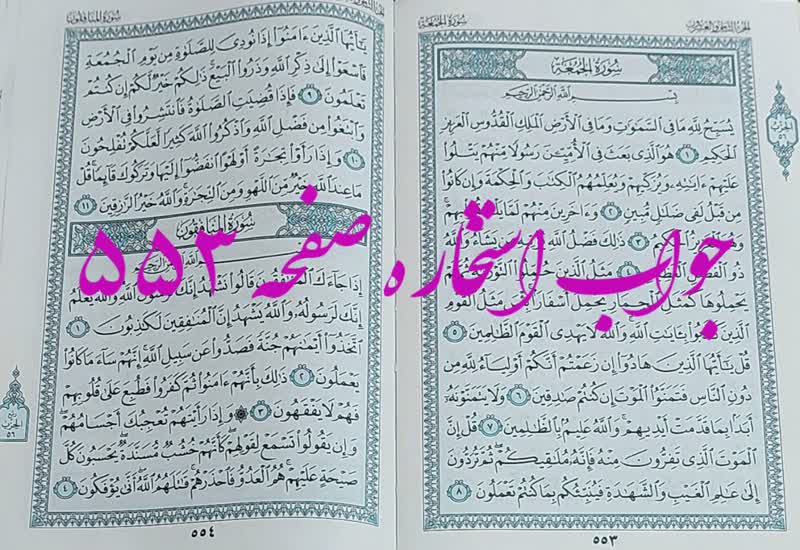 الجزء الثامن والعشرون
سورة الجمعة
سُورَةُ الجُمُعَةِ
بِسْمِ اللَّهِ الرَّحْمَٰنِ الرَّحِيمِ
يُسَبِّحُ لِلَّهِ مَا فِي السَّمَٰوَٰتِ وَمَا فِي الْأَرْضِ الْمَلِكِ الْقُدُّوسِ الْعَزِيزِ
الْحَكِيمِ ١ هُوَ الَّذِي بَعَثَ فِي الْأُمِّيِّينَ رَسُولًا مِّنْهُمْ يَتْلُوا
عَلَيْهِمْ ءَايَٰتِهِ وَيُزَكِّيهِمْ وَيُعَلِّمُهُمُ الْكِتَٰبَ وَالْحِكْمَةَ وَإِن كَانُوا
مِن قَبْلُ لَفِي ضَلَٰلٍ مُّبِينٍ ٢ وَءَاخَرِينَ مِنْهُمْ لَمَّا يَلْحَقُوا بِهِمْ
وَهُوَ الْعَزِيزُ الْحَكِيمُ ٣ ذَٰلِكَ فَضْلُ اللَّهِ يُؤْتِيهِ مَن يَشَاءُ وَاللَّهُ
ذُو الْفَضْلِ الْعَظِيمِ ٤ مَثَلُ الَّذِينَ حُمِّلُوا التَّوْرَىٰةَ ثُمَّ لَمْ
يَحْمِلُوهَا كَمَثَلِ الْحِمَارِ يَحْمِلُ أَسْفَارًا بِئْسَ مَثَلُ الْقَوْمِ
الَّذِينَ كَذَّبُوا بِـَٔايَٰتِ اللَّهِ وَاللَّهُ لَا يَهْدِي الْقَوْمَ الظَّٰلِمِينَ ٥
قُلْ يَٰأَيُّهَا الَّذِينَ هَادُوا إِن زَعَمْتُمْ أَنَّكُمْ أَوْلِيَاءُ لِلَّهِ مِن
دُونِ النَّاسِ فَتَمَنَّوُا الْمَوْتَ إِن كُنتُمْ صَٰدِقِينَ ٦ وَلَا يَتَمَنَّوْنَهُ
أَبَدًا بِمَا قَدَّمَتْ أَيْدِيهِمْ وَاللَّهُ عَلِيمٌ بِالظَّٰلِمِينَ ٧ قُلْ إِنَّ
الْمَوْتَ الَّذِي تَفِرُّونَ مِنْهُ فَإِنَّهُ مُلَٰقِيكُمْ ثُمَّ تُرَدُّونَ
إِلَىٰ عَٰلِمِ الْغَيْبِ وَالشَّهَٰدَةِ فَيُنَبِّئُكُم بِمَا كُنتُمْ تَعْمَلُونَ ٨
٥٥٣
الحزب
٥٦
سورة المنافقون
يَٰأَيُّهَا الَّذِينَ ءَامَنُوا إِذَا نُودِيَ لِلصَّلَوٰةِ مِن يَوْمِ الْجُمُعَةِ
فَاسْعَوْا إِلَىٰ ذِكْرِ اللَّهِ وَذَرُوا الْبَيْعَ ذَٰلِكُمْ خَيْرٌ لَّكُمْ إِن كُنتُمْ
تَعْلَمُونَ ٩ فَإِذَا قُضِيَتِ الصَّلَوٰةُ فَانتَشِرُوا فِي الْأَرْضِ
وَابْتَغُوا مِن فَضْلِ اللَّهِ وَاذْكُرُوا اللَّهَ كَثِيرًا لَّعَلَّكُمْ تُفْلِحُونَ
١٠ وَإِذَا رَأَوْا تِجَٰرَةً أَوْ لَهْوًا انفَضُّوا إِلَيْهَا وَتَرَكُوكَ قَائِمًا قُلْ
مَا عِندَ اللَّهِ خَيْرٌ مِّنَ اللَّهْوِ وَمِنَ التِّجَٰرَةِ وَاللَّهُ خَيْرُ الرَّٰزِقِينَ ١١
سُورَةُ المُنَافِقُونَ
بِسْمِ اللَّهِ الرَّحْمَٰنِ الرَّحِيمِ
إِذَا جَاءَكَ الْمُنَٰفِقُونَ قَالُوا نَشْهَدُ إِنَّكَ لَرَسُولُ اللَّهِ وَاللَّهُ يَعْلَمُ
إِنَّكَ لَرَسُولُهُ وَاللَّهُ يَشْهَدُ إِنَّ الْمُنَٰفِقِينَ لَكَٰذِبُونَ ١
اتَّخَذُوا أَيْمَٰنَهُمْ جُنَّةً فَصَدُّوا عَن سَبِيلِ اللَّهِ إِنَّهُمْ سَاءَ مَا كَانُوا
يَعْمَلُونَ ٢ ذَٰلِكَ بِأَنَّهُمْ ءَامَنُوا ثُمَّ كَفَرُوا فَطُبِعَ عَلَىٰ قُلُوبِهِمْ
فَهُمْ لَا يَفْقَهُونَ ٣ وَإِذَا رَأَيْتَهُمْ تُعْجِبُكَ أَجْسَامُهُمْ
وَإِن يَقُولُوا تَسْمَعْ لِقَوْلِهِمْ كَأَنَّهُمْ خُشُبٌ مُّسَنَّدَةٌ يَحْسَبُونَ كُلَّ
صَيْحَةٍ عَلَيْهِمْ هُمُ الْعَدُوُّ فَاحْذَرْهُمْ قَٰتَلَهُمُ اللَّهُ أَنَّىٰ يُؤْفَكُونَ ٤
٥٥٤
الحزب
٥٦
جواب استخاره صفحه ۵۵۳